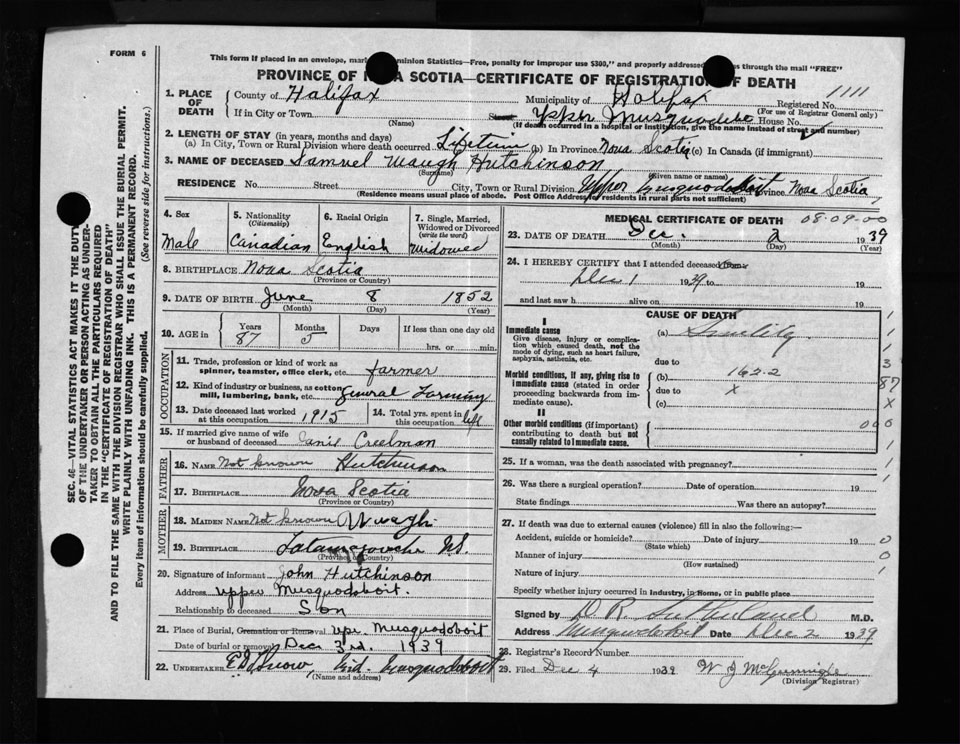 FORM 6
This form if placed in an envelope, mar minion Statistics—Free, penalty for improper use $300," and properly addresse s through the mail "FREE"
PROVINCE OF A SCOTIA—CERTIFICATE OF REGISTRATION OF DEATH
1111
1. PLACE OF DEATH
County of Halifax Municipality of Halifax Registered No.
(For use of Registrar General only)
If in City or Town Street Upper Musquodobo House No.
(Name) (If death occurred in a hospital or institution, give the name instead of street and number)
2. LENGTH OF STAY (in years, months and days)
(a) In City, Town or Rural Division where death occurred Lifetime (b) In Province Nova Scotia (c) In Canada (if immigrant)
3. NAME OF DECEASED Samuel Waugh Hutchinson
(Surname) (Given name or names)
RESIDENCE No. Street City, Town or Rural Division Upper Musquodoboit Province Nova Scotia
(Residence means usual place of abode. Post Office Address for residents in rural parts not sufficient)
4. Sex
Male
5. Nationality
(Citizenship)
Canadian
6. Racial Origin
English
7. Single, Married, Widowed or Divorced
(write the word)
Widowed
8. BIRTHPLACE Nova Scotia
(Province or Country)
9. DATE OF BIRTH June 8 1852
(Month) (Day) (Year)
10. AGE IN
Years Months Days If less than one day
87 5 hrs. or min.
OCCUPATION
11. Trade, profession or kind of work as
spinner, teamster, office clerk, etc. farmer
12. Kind of industry or business, as cotton
mill, lumbering, bank, etc. General Farming
13. Date deceased last worked
at this occupation 1915
14. Total yrs. spent in
this occupation life
15. If married give name of wife
or husband of deceased Creelman
FATHER
16. NAME Not known Hutchinson
17. BIRTHPLACE Nova Scotia
(Province or Country)
MOTHER
18. MAIDEN NAME Not known Waugh
19. BIRTHPLACE Tatamagouche N.S.
(Province or Country)
20. Signature of informant John Hutchinson
Address Upper Musquodoboit.
Relationship to deceased Son
21. Place of Burial, Cremation or Removal Upr. Musquodoboit
Date of burial or removal Dec 3rd. 1939
22. UNDERTAKER Musquodoboit
(Name and address)
MEDICAL CERTIFICATE OF DEATH 08-09-00
23. DATE OF DEATH Dec. 2 1939
(Month) (Day) (Year)
24. I HEREBY CERTIFY that I attended deceased from
Dec 1 1939 to 19
and last saw h alive on 19
CAUSE OF DEATH
I
Immediate cause
Give disease, injury or complication which caused death, not the mode of dying, such as heart failure, asphyxia, asthenia, etc.
(a) Senility
due to
Morbid conditions, if any, giving rise to immediate cause (stated in order proceeding backwards from immediate cause).
(b) 162-2
due to X
(c)
II
Other morbid conditions (if important) contributing to death but not causally related to immediate cause.
1
1
1
3
87
X
000
1
1
1
25. If a woman, was the death associated with pregnancy?
26. Was there a surgical operation? Date of operation 19
State findings Was there an autopsy?
27. If death was due to external causes (violence) fill in also the following:—
Accident, suicide or homicide? Date of injury 19 0
(State which)
Manner of injury 0
(How sustained)
Nature of injury 1
Specify whether injury occurred in Industry, in Home, or in public place
Signed by D. R. Sutherland M.D.
Address Musquodoboit Date Dec 2 1939
28. Registrar's Record Number
29. Filed Dec 4 1939
(Division Registrar)
SEC. 46—VITAL STATISTICS ACT MAKES IT THE DUTY
OF THE UNDERTAKER OR PERSON ACTING AS UNDER-
TAKER TO OBTAIN ALL THE PARTICULARS REQUIRED
IN THE "CERTIFICATE OF REGISTRATION OF DEATH"
AND TO FILE THE SAME WITH THE DIVISION REGISTRAR WHO SHALL ISSUE THE BURIAL PERMIT.
WRITE PLAINLY WITH UNFADING INK. THIS IS A PERMANENT RECORD.
Every item of information should be carefully supplied. (See reverse side for instructions.)